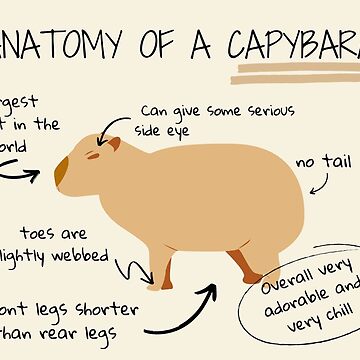 ANATOMY OF A CAPYBARA
rgest
t in the
orld
Can give some serious
side eye
no tail
toes are
lightly webbed
ont legs shorter
han rear legs
Overall very
adorable and
very chill